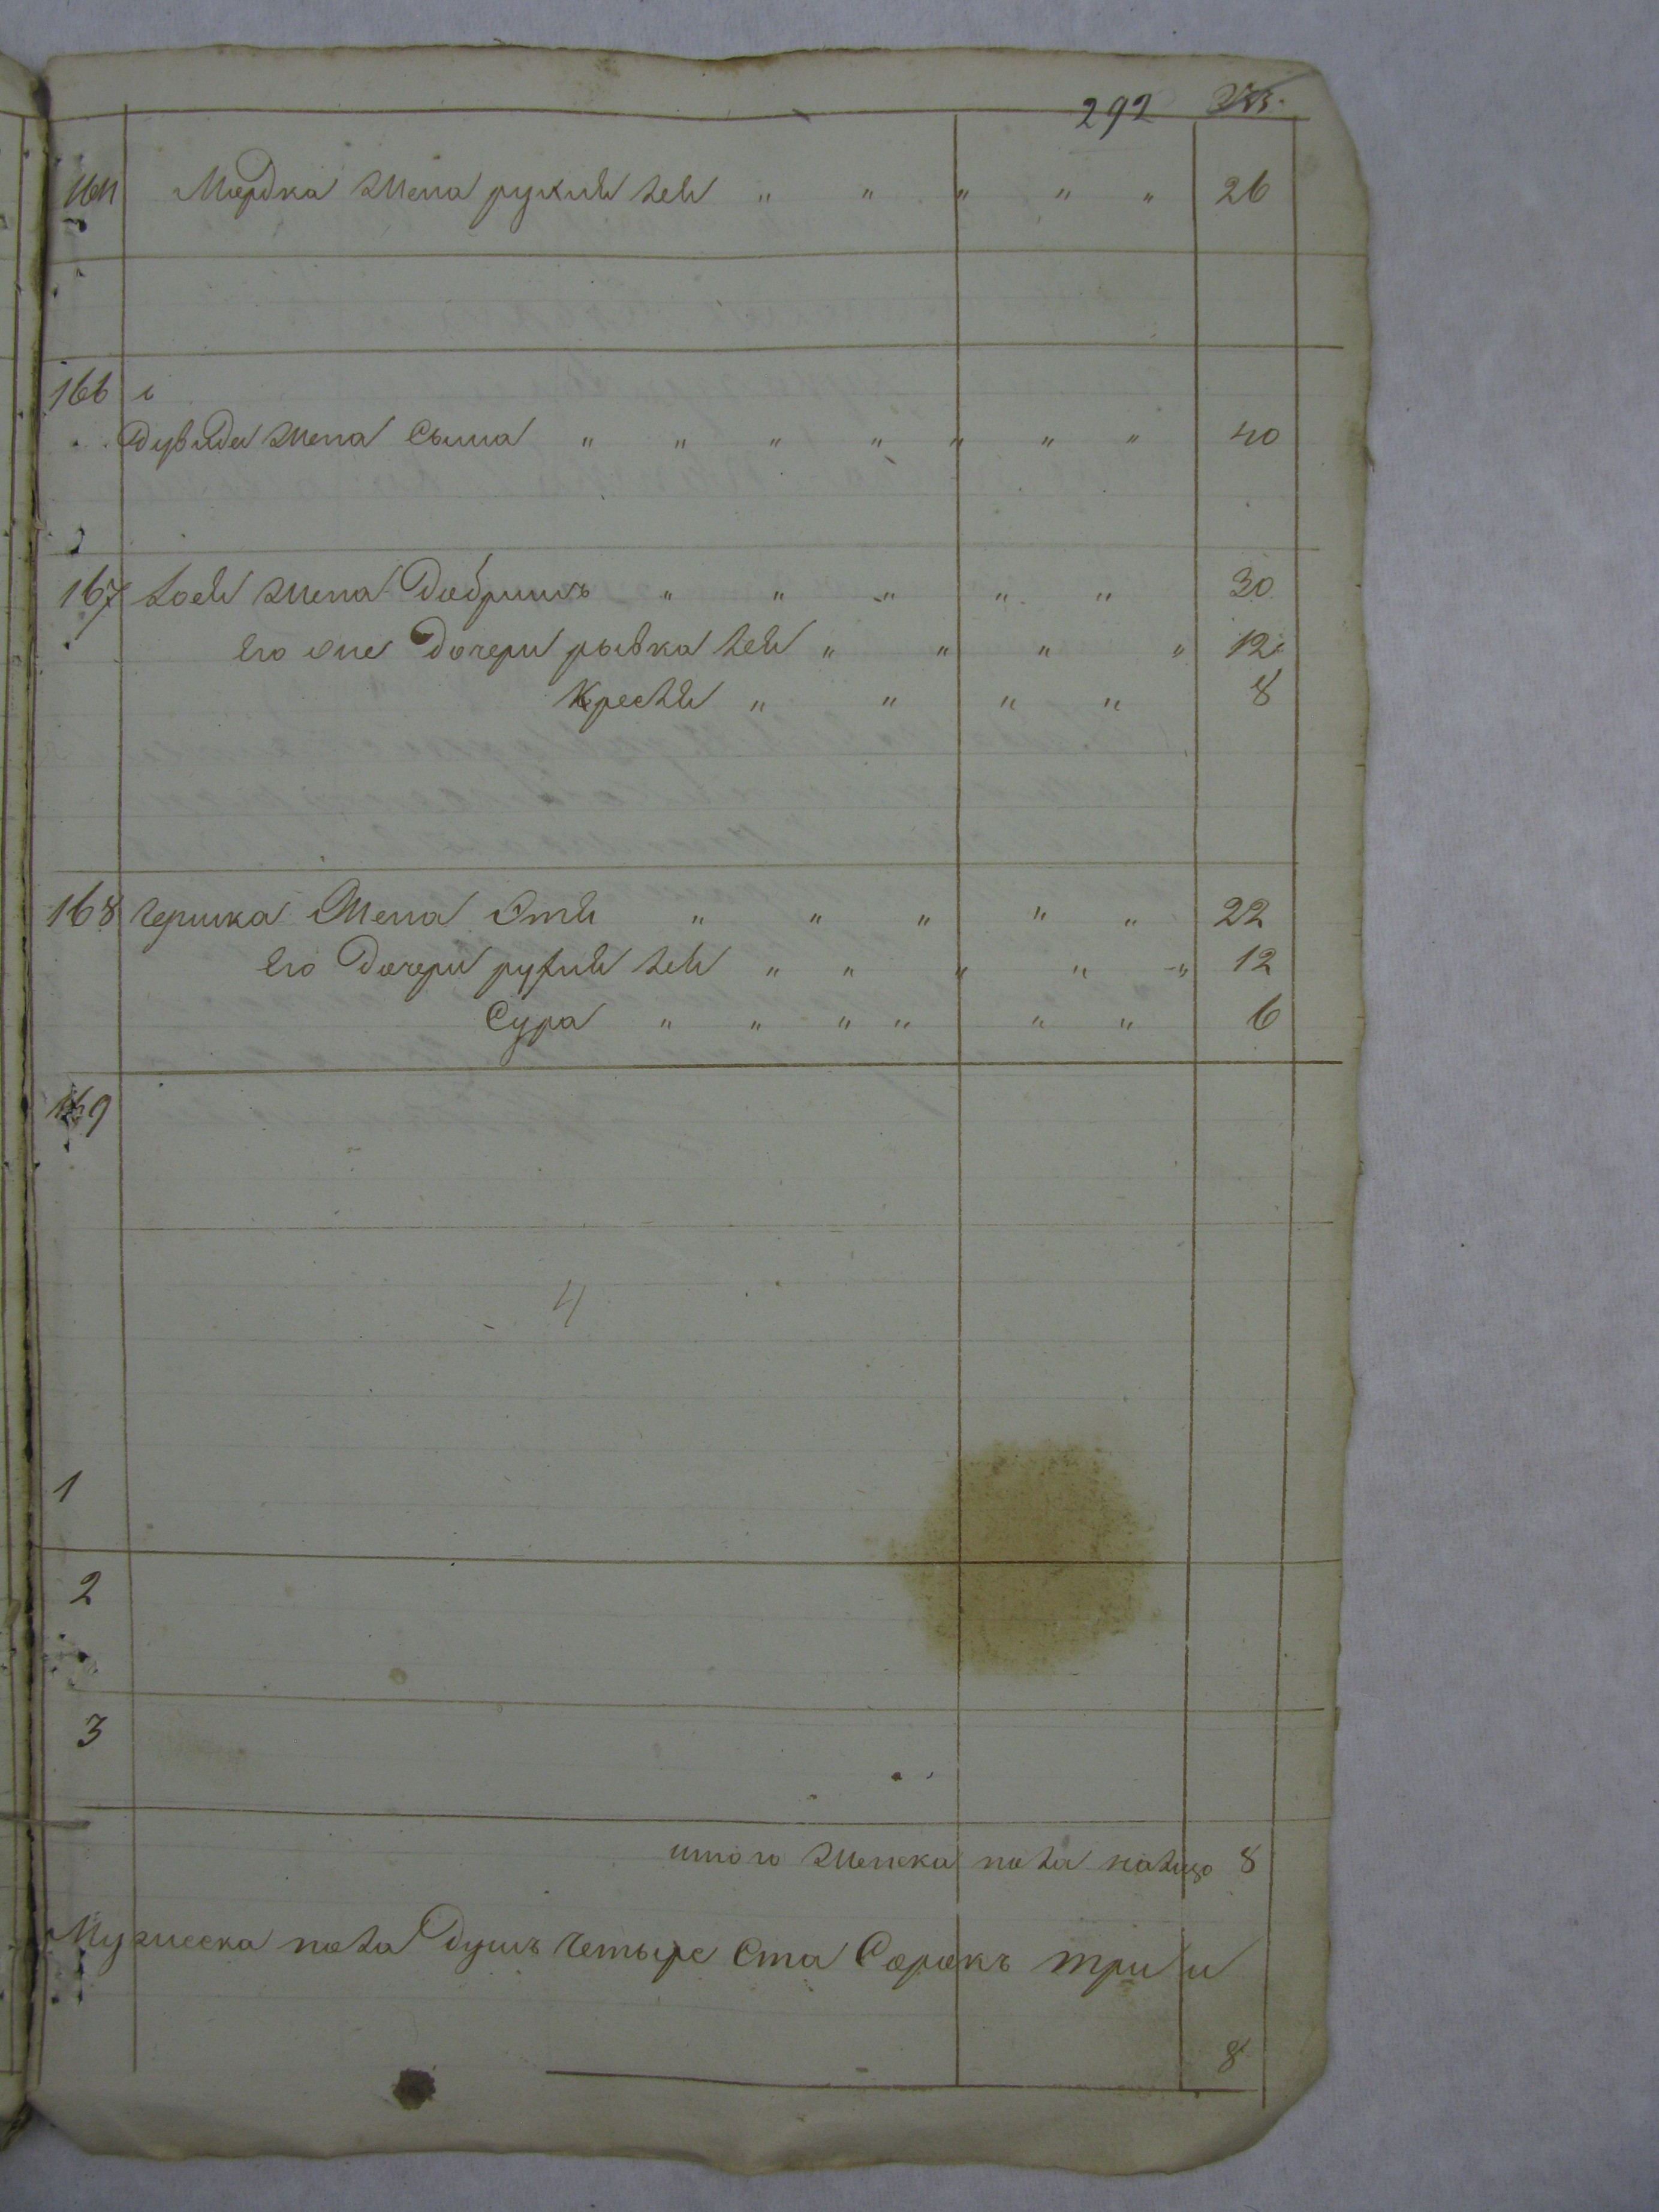 292
Мордка жена рухля лея " " " " " 26
166
Дувида жена Сыма " " " " " " " 40
167 лоея жена Добришъ " " " " " 30
его оне дочери рывка лея " " " " 12
" " " " 8
168 гершка жена Этя " " " " " 22
его дочери рухля лея " " " " " 12
Сура " " " " " " 6
169
4
1
2
3
итого женска пола налицо 8
Мужеска пола душъ четыре ста сорокъ три и
8